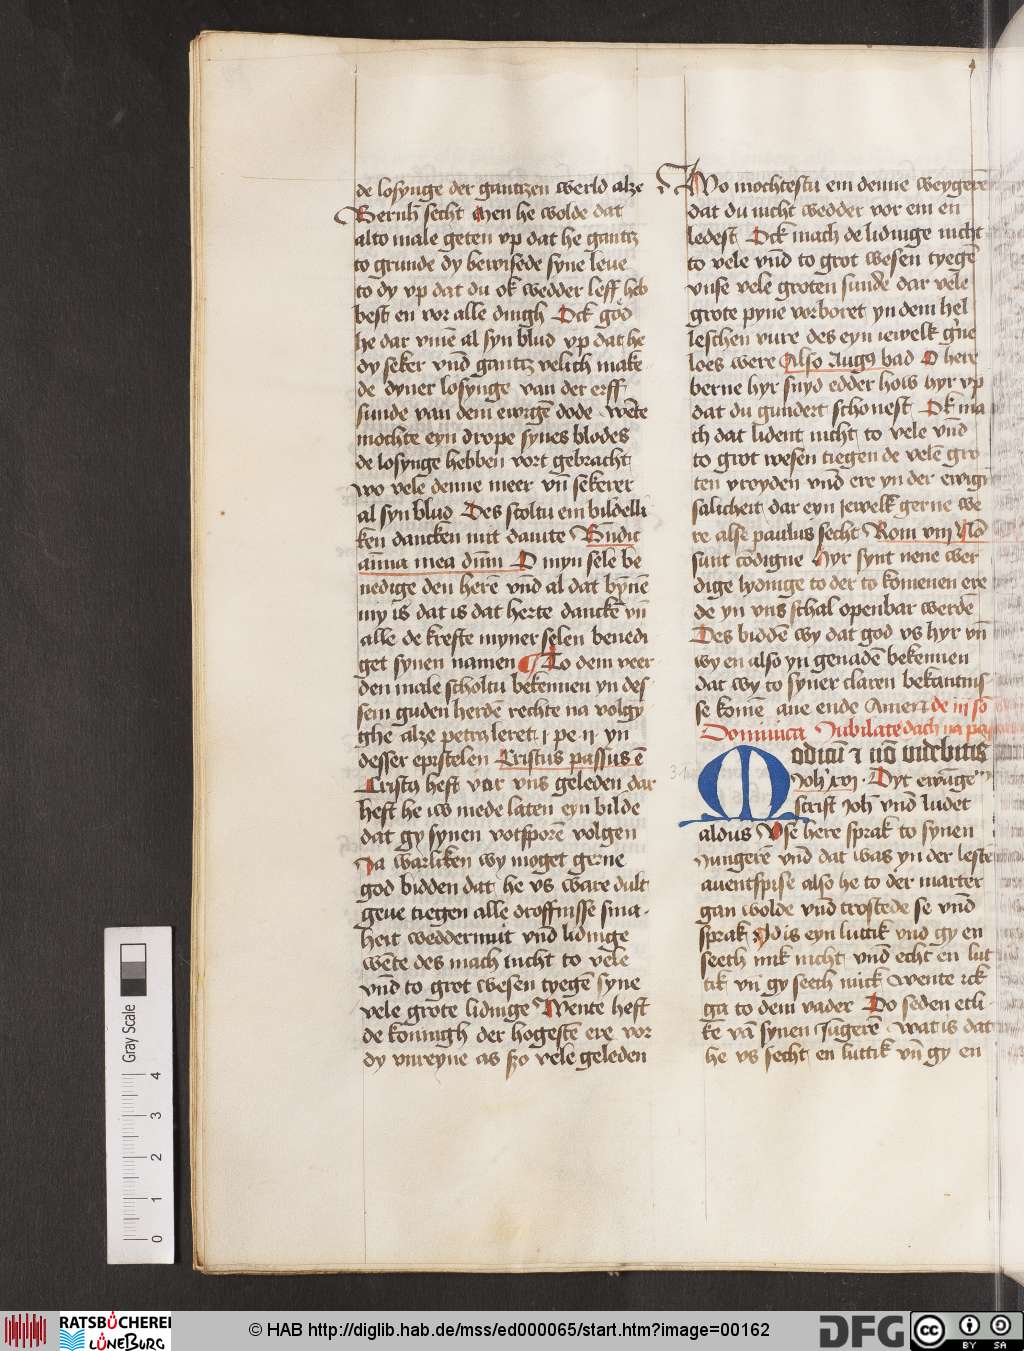 de losynge der gantzen werld alze
Bernh̄ secht Men he wolde dat
alto male geten vp dat he gantz
to grunde dy bewisede syne leue
to dy vp dat du ok wedder leff heb
best en vor alle dingh Ock god
he dar vm̄e al syn blud vp dat he
dy seker vn̄d gantz velich make
de dyner losynge van der erff
sunde van dem ewigē dode wēte
mochte eyn drope synes blodes
de losynge hebben vort gebracht
wo vele denne meer vn̄ sekerer
al syn blud Des scoltu em bildelli
ken dancken mit dauite Bn̄dic
aīma mea dn̄m O myn sele be
nedige den herē vn̄d al dat bȳnē
my is dat is dat herte danckē vn̄
alle de krefte myner selen benedi
get synen namen ¶ To dem veer
den male scholtu bekennen yn des
sem guden herdē rechte na volgy
ghe alze petrꝰ leret i pe ii yn
desser epistelen Cristus passus ē
Cristꝰ heft vor vns geleden dar
heft he iw mede laten eyn bilde
dat gy synen votsporē volgen
Ja warliken wy moget gerne
god bidden dat he vs ware dult
geue tiegen alle droffnisse sma
heit weddermut vn̄d lidinge
wēte des mach nicht to vele
vn̄d to grot wesen tyegē syne
vele grote lidinge Wente heft
de konnigh der hogestē ere vor
dy vnreyne as szo vele geleden
Wo mochtestu em denne weygerē
dat du nicht wedder vor em en
ledest Ock mach de lidinge nicht
to vele vn̄d to grot wesen tyegē
vnse vele groten sunde dar vele
grote pyne vorboret yn dem hel
leschen vure des eyn iewelk g̾ne
loes were Also Augꝰ bad O here
berne hyr snyd edder how hyr vp
dat du gundert schonest Ok ma
ch dat lident nicht to vele vn̄d
to grot wesen tiegen de velē gro
ten vroyden vn̄d ere yn der ewigē
salicheit dar eyn jewelk gerne we
re alse paulus secht Rom viij Nō
sunt cōdigne Hyr synt nene wer
dige lydinge to der to komenen ere
de yn vns schal openbar werdē
Des biddē wy dat god vs hyr vn̄
wy en also yn genadē bekennen
dat wy to syner claren bekantnis
se komē aue ende Amen de iij sō
Dominica Jubilate dach na pas
Modicū ⁊ nō videbitis
Joh̄ xvj Dyt ewāge
scrift Joh̄ vn̄d ludet
aldus Vse here sprak to synen
Jungerē vn̄d dat was yn der leste
auentspise also he to der marter
gan wolde vn̄d trostede se vn̄d
sprak Id is eyn luttik vnd gy en
seeth mik nicht vn̄d echt en lut
tik vn̄ gy seeth mick wente ick
ga to dem vader Do seden etli
kē vā synen Jūgerē wat is dat
he vs secht en luttik vn̄ gy en
Gray Scale
4
3
2
1
0
RATSBÜCHEREI
LÜNEBURG
© HAB http://diglib.hab.de/mss/ed000065/start.htm?image=00162
DFG
cc
BY
SA